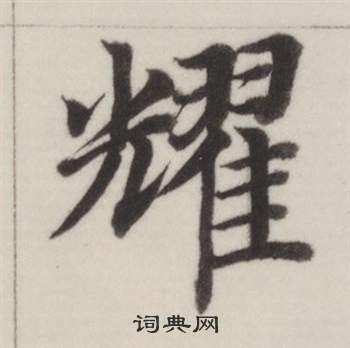 耀
词典网